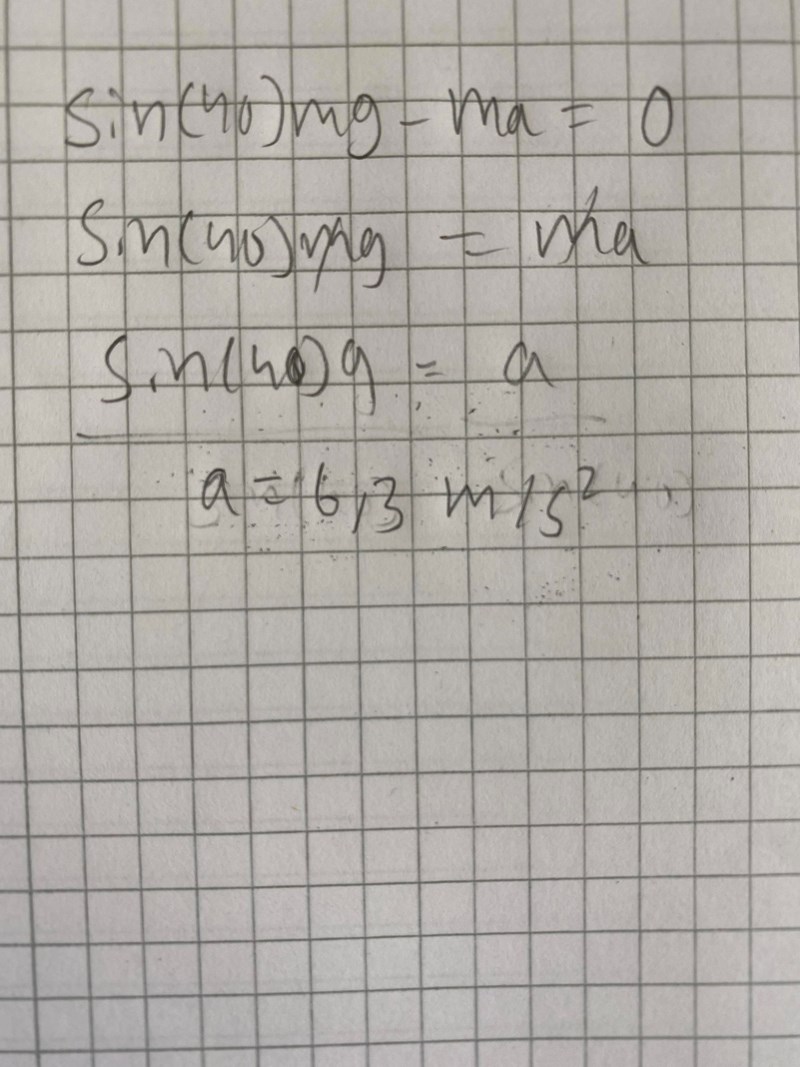 Sin(40)mg - ma = 0
Sin(40)mg = ma
Sin(40)g = a
a = 6,3 m/s²